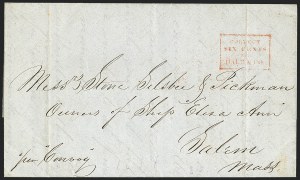 COLLECT
SIX CENTS
HALE & CO.
Messrs Stone Silsbee & Pickman
Owners of Ship Eliza Ann
Salem
Mass
per "Convoy"